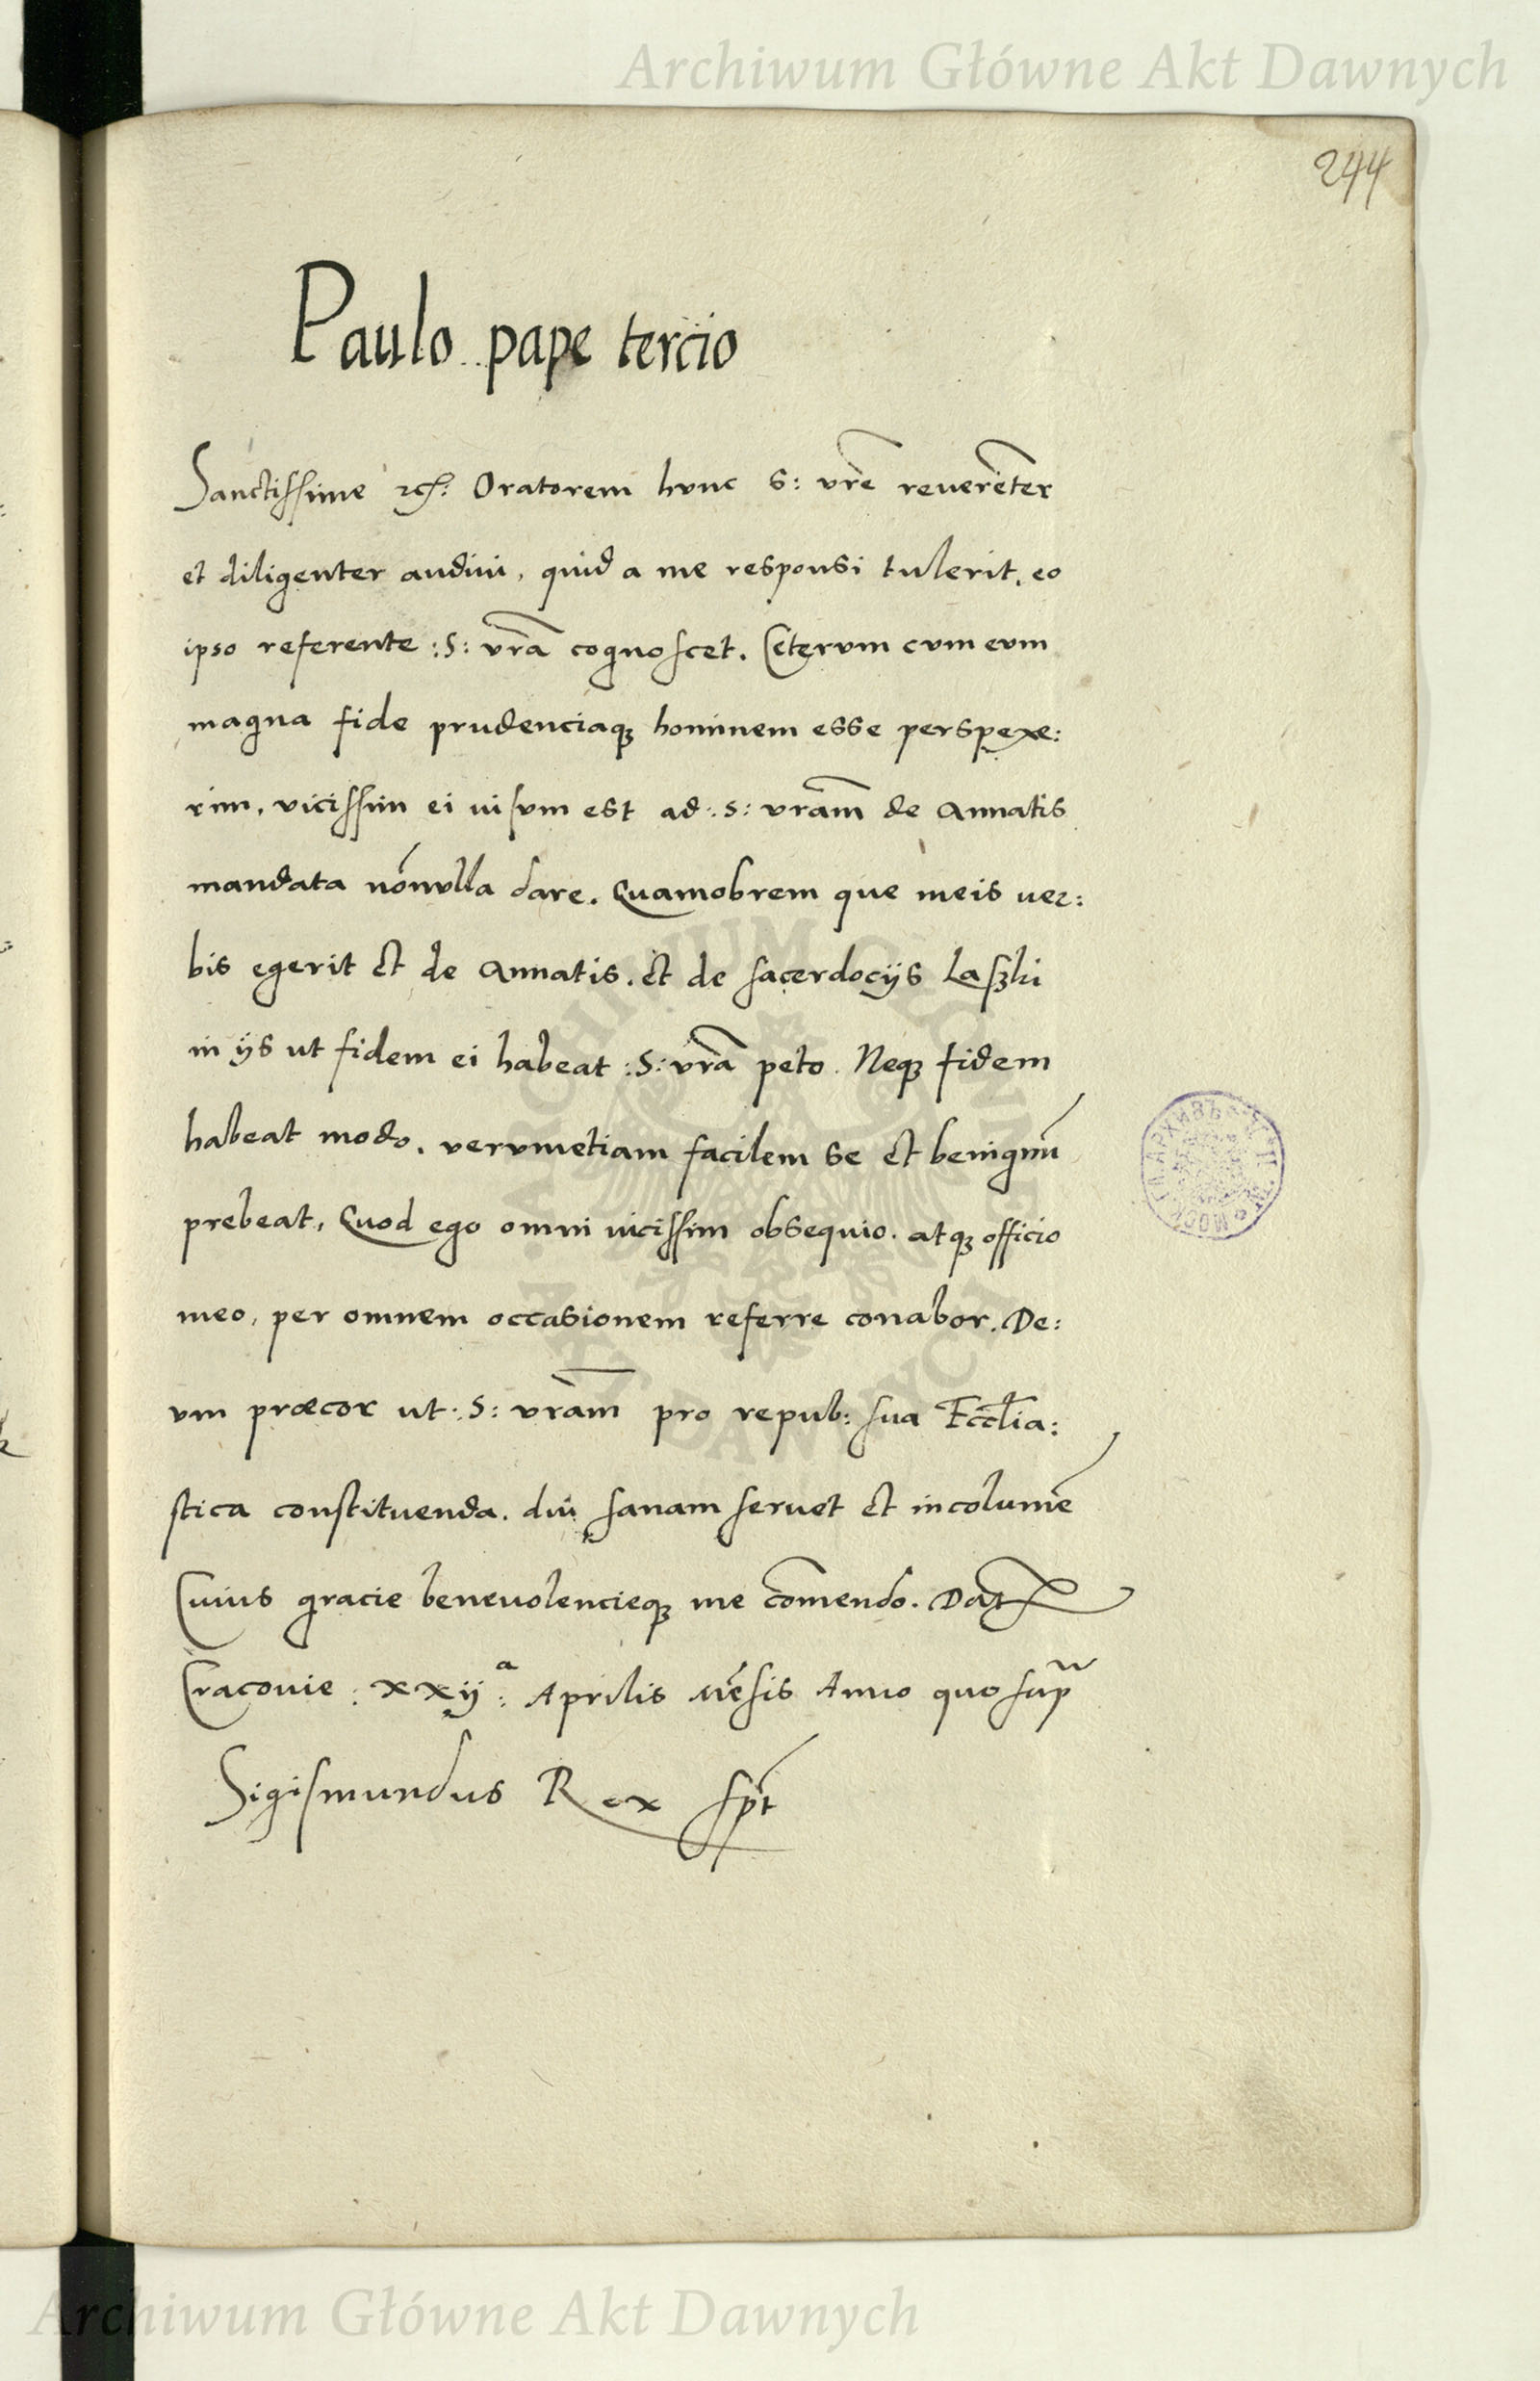 Archiwum Główne Akt Dawnych
244
Paulo pape tercio
Sanctissime etc: Oratorem hunc S: vrē reuerēter
et diligenter audiui, quid a me responsi tulerit, eo
ipso referente :S: vrā cognoscet. Ceterum cum eum
magna fide prudenciaqꝫ hominem esse perspexe:
rim, vicissim ei uisum est ad :S: vrām de Annatis
mandata nōnulla dare. Quamobrem que meis uer:
bis egerit et de Annatis. et de sacerdocijs Laszki
in ijs ut fidem ei habeat :S: vrā peto. Neqꝫ fidem
habeat modo. verumetiam facilem se et benignū
prebeat, Quod ego omni uicissim obsequio. atqꝫ officio
meo, per omnem occasionem referre conabor. De:
um præcor ut :S: vrām pro repub: sua Eccľia:
stica constituenda. diu sanam seruet et incolumē
Cuius gracie beneuolencieqꝫ me cōmendo. Dat
Cracouie : xxijª : Aprilis mēsis Anno quo sup
Sigismundus Rex spt
ARCHIWUM GŁÓWNE AKT DAWNYCH
Archiwum Główne Akt Dawnych